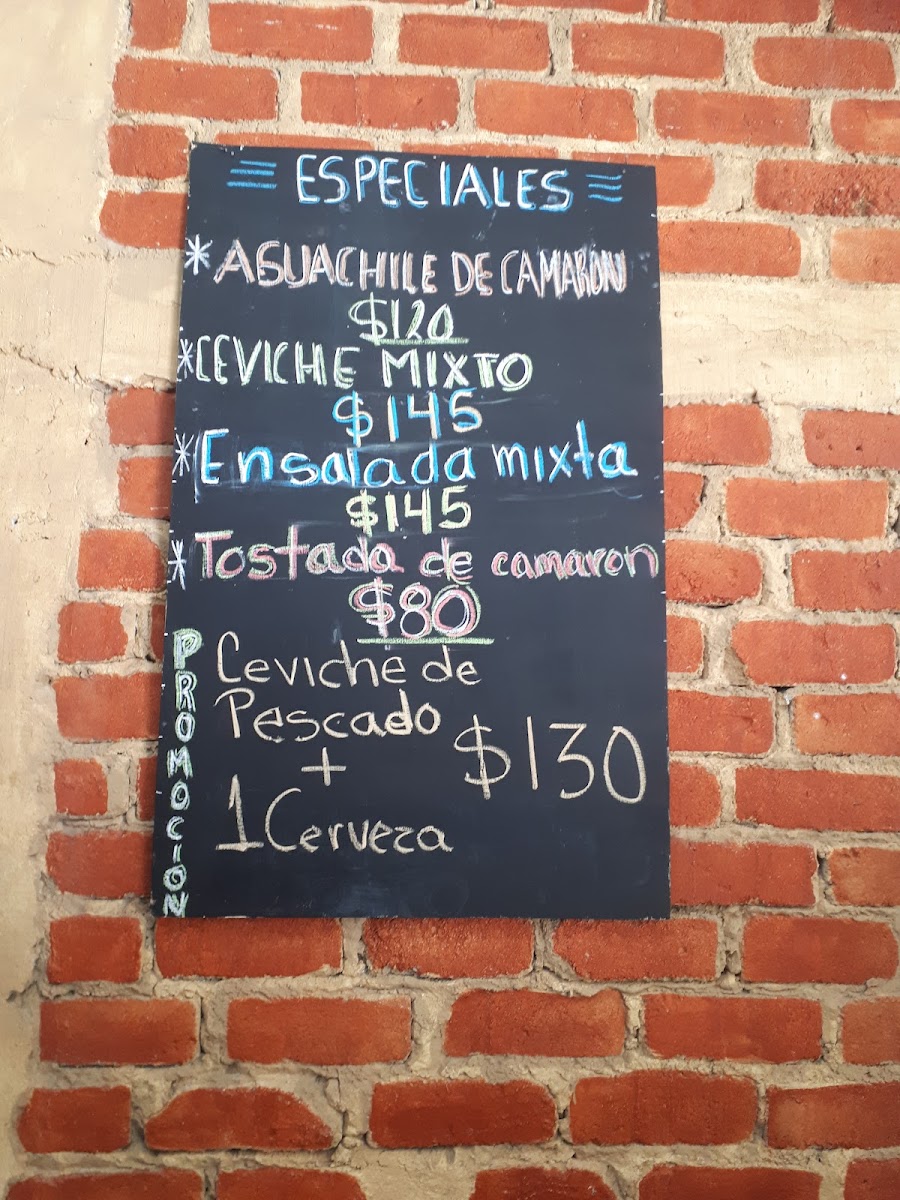 ESPECIALES
* AGUACHILE DE CAMARON
$120
*CEVICHE MIXTO
$145
*Ensalada mixta
$145
*Tostada de camaron
$80
PROMOCION
Ceviche de
Pescado
+
$130
1 Cerveza